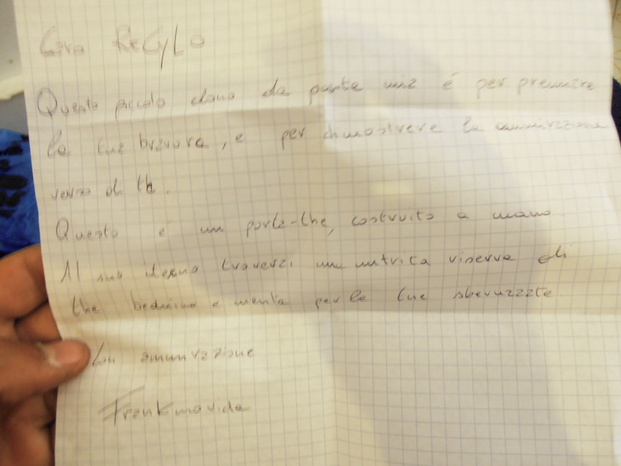 Caro ReCyLo
Questo piccolo dono da parte mia é per premiare
la tua bravura, e per dimostrare la ammirazione
verso di te.
Questo é un porta-the, costruito a mano
Al suo interno troverai una nutrita riserva di
the beduino e menta per le tue sbevazzate
Con ammirazione
Frankmovida